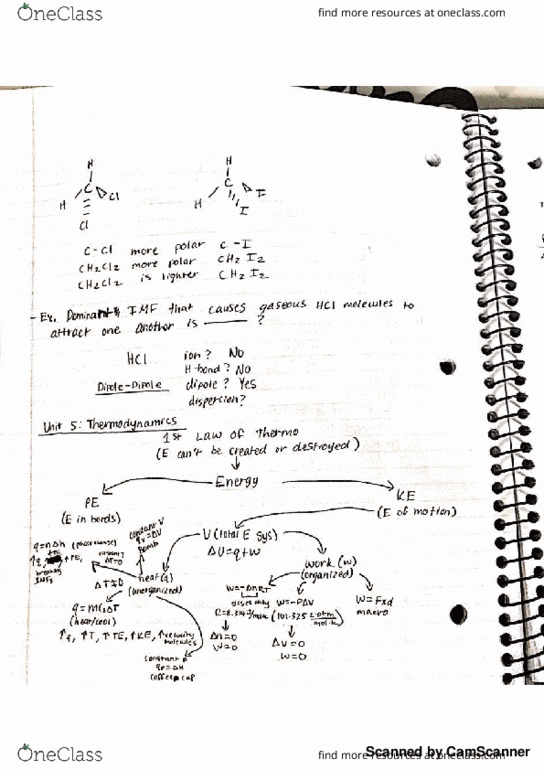 OneClass
find more resources at oneclass.com
H
C
H
Cl
Cl
H
C
H
I
I
C-Cl more polar C-I
CH2Cl2 more polar CH2I2
CH2Cl2 is lighter CH2I2
- Ex. Dominant IMF that causes gaseous HCl molecules to
attract one another is ____ ?
HCl ion? No
H-bond? No
Dipole-Dipole dipole? Yes
dispersion?
Unit 5: Thermodynamics
1st Law of Thermo
(E can't be created or destroyed)
Energy
PE
(E in bonds)
KE
(E of motion)
constant V
qv = ΔV
Bomb
U (total E sys)
ΔU=q+w
q=nΔh (phase change)
breaking IMFs
ΔT=0
ΔT≠0
heat(q)
(unorganized)
work (w)
(organized)
q=mCΔT
(heat/cool)
↑q, ↑T, ↑TE, ↑KE, ↑velocity molecules
constant P
qp=ΔH
coffee cup
w=-ΔnRT
gases only
R=8.314J/molK
Δn=0
w=0
w=-PΔV
(101.325 L·atm/mol·K)
ΔV=0
w=0
w=Fxd
macro
OneClass
find more resources at oneclass.com
Scanned by CamScanner